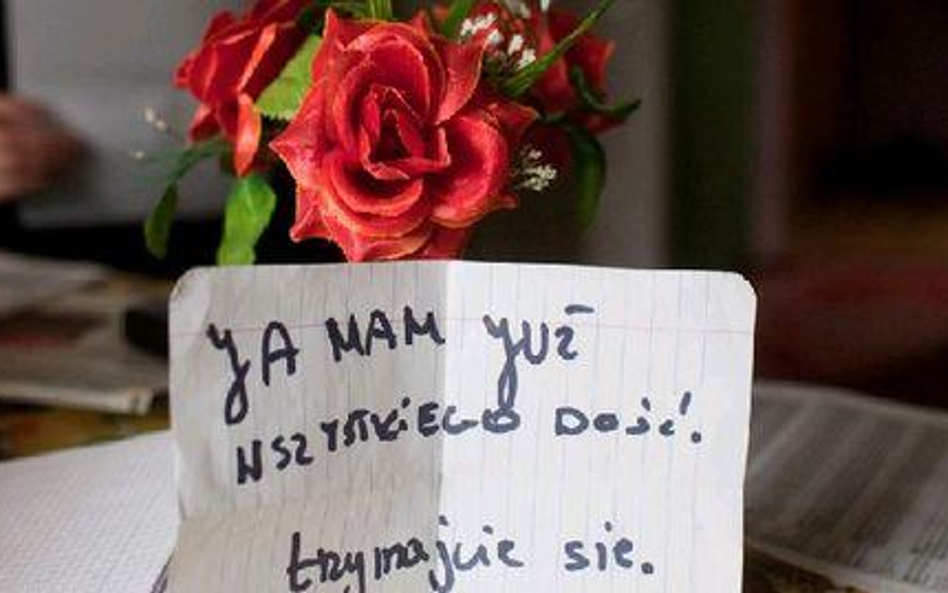 YA MAM YUŻ
WSZYSTKIEGO DOŚĆ!
trzymajcie sie.